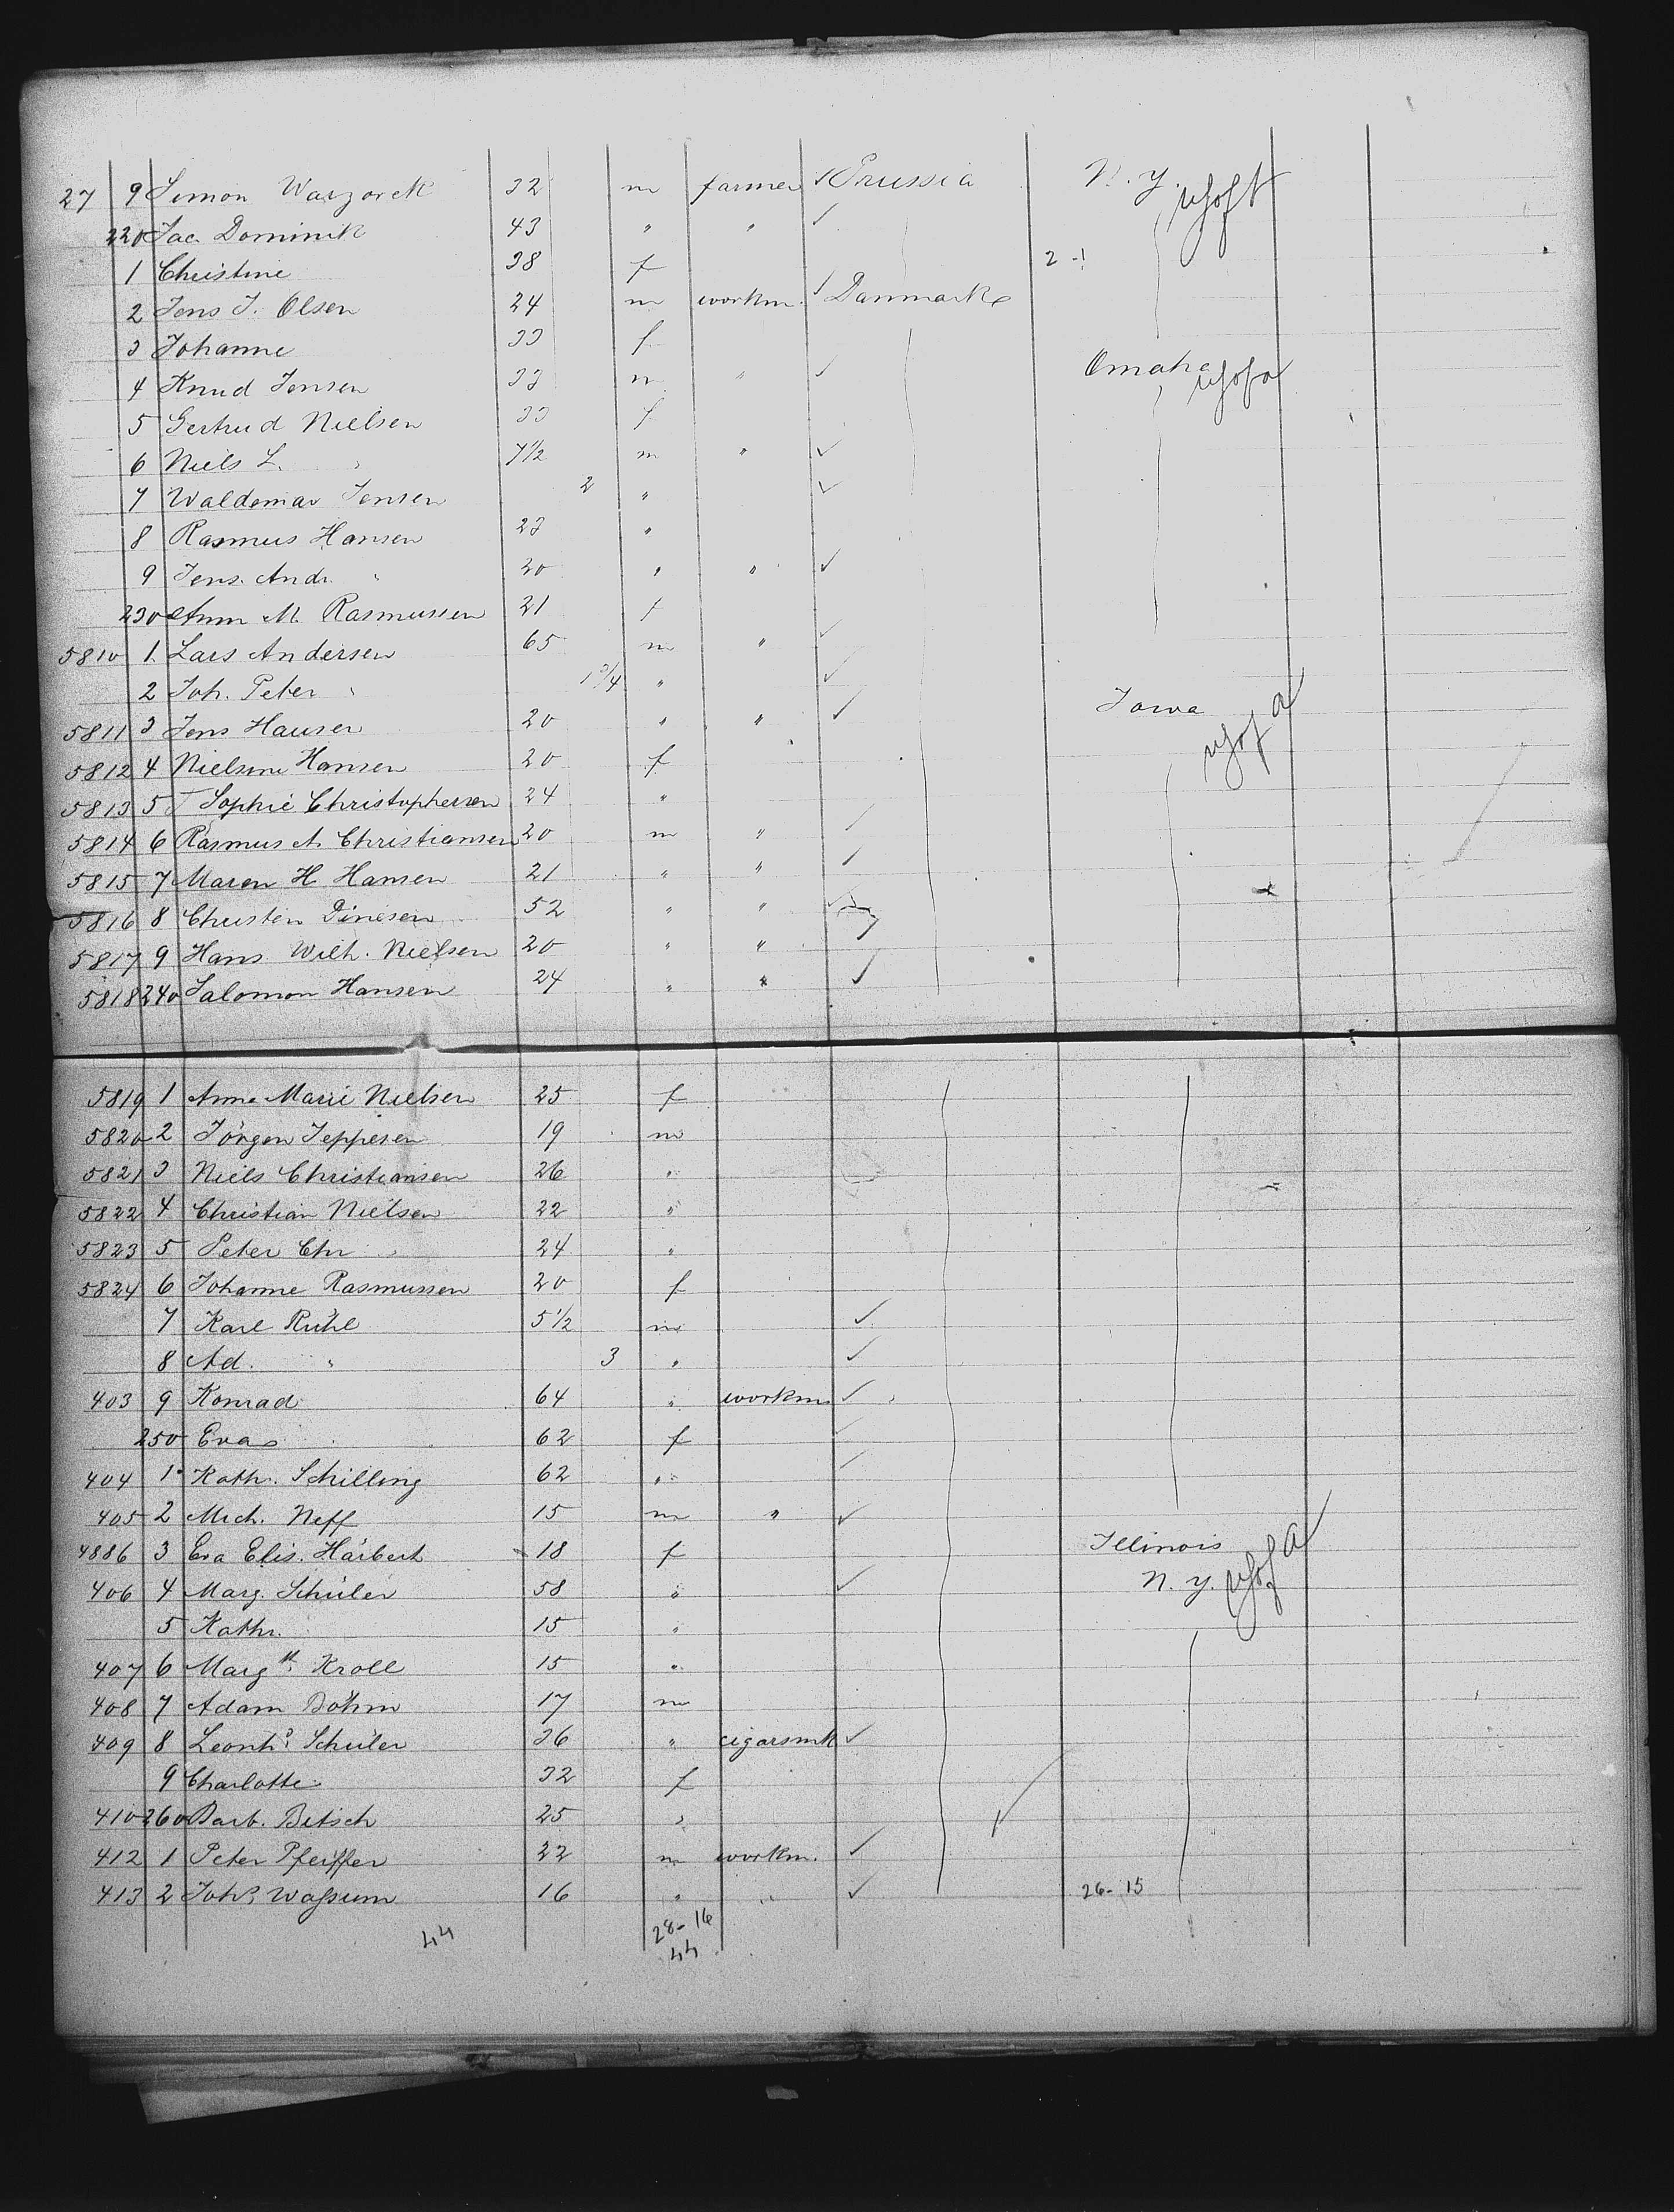 27 9 Simon Warzoreck 32 m farmer Prussia N. Y.
220 Jac. Dominik 43 " "
1 Christine 38 f 2-1
2 Jens J. Olsen 24 m workm. Danmark
3 Johanne 33 f
4 Knud Jensen 33 m " Omaha
5 Gertrud Nielsen 33 f
6 Niels L. " 7 1/2 m "
7 Waldemar Jensen 2 "
8 Rasmus Hansen 23 "
9 Jens. Andr. " 20 " "
230 Ann M. Rasmussen 21 f
5810 1 Lars Andersen 65 m "
2 Joh. Peter " 1 3/4 "
5811 3 Jens Hansen 20 " " Iowa
5812 4 Nielsine Hansen 20 f
5813 5 Sophie Christophersen 24 "
5814 6 Rasmus A. Christiansen 20 m "
5815 7 Maren H Hansen 21 " "
5816 8 Christen Dinesen 52 " "
5817 9 Hans Wilh. Nielsen 20 " "
5818 240 Salomon Hansen 24 " "
5819 1 Anne Marie Nielsen 25 f
5820 2 Jörgen Jeppesen 19 m
5821 3 Niels Christiansen 26 "
5822 4 Christian Nielsen 22 "
5823 5 Peter Chr " 24 "
5824 6 Johanne Rasmussen 20 f
7 Karl Rühl 5 1/2 m
8 Ad. " 3 "
403 9 Konrad 64 " workm.
250 Eva 62 f
404 1 Kath. Schilling 62 "
405 2 Mich. Neff 15 m "
4886 3 Eva Elis. Harbert 18 f Illinois
406 4 Marg. Schüler 58 " N. Y.
5 Kathr. 15 "
407 6 Marg. Kroll 15 "
408 7 Adam Böhm 17 m
409 8 Leonh. Schüler 36 " cigarsmk
9 Charlotte 32 f
410 260 Barb. Betsch 25 "
412 1 Peter Pfeiffer 22 m workm.
413 2 Joh. Waßum 16 " " 26-15
44 28-16
44